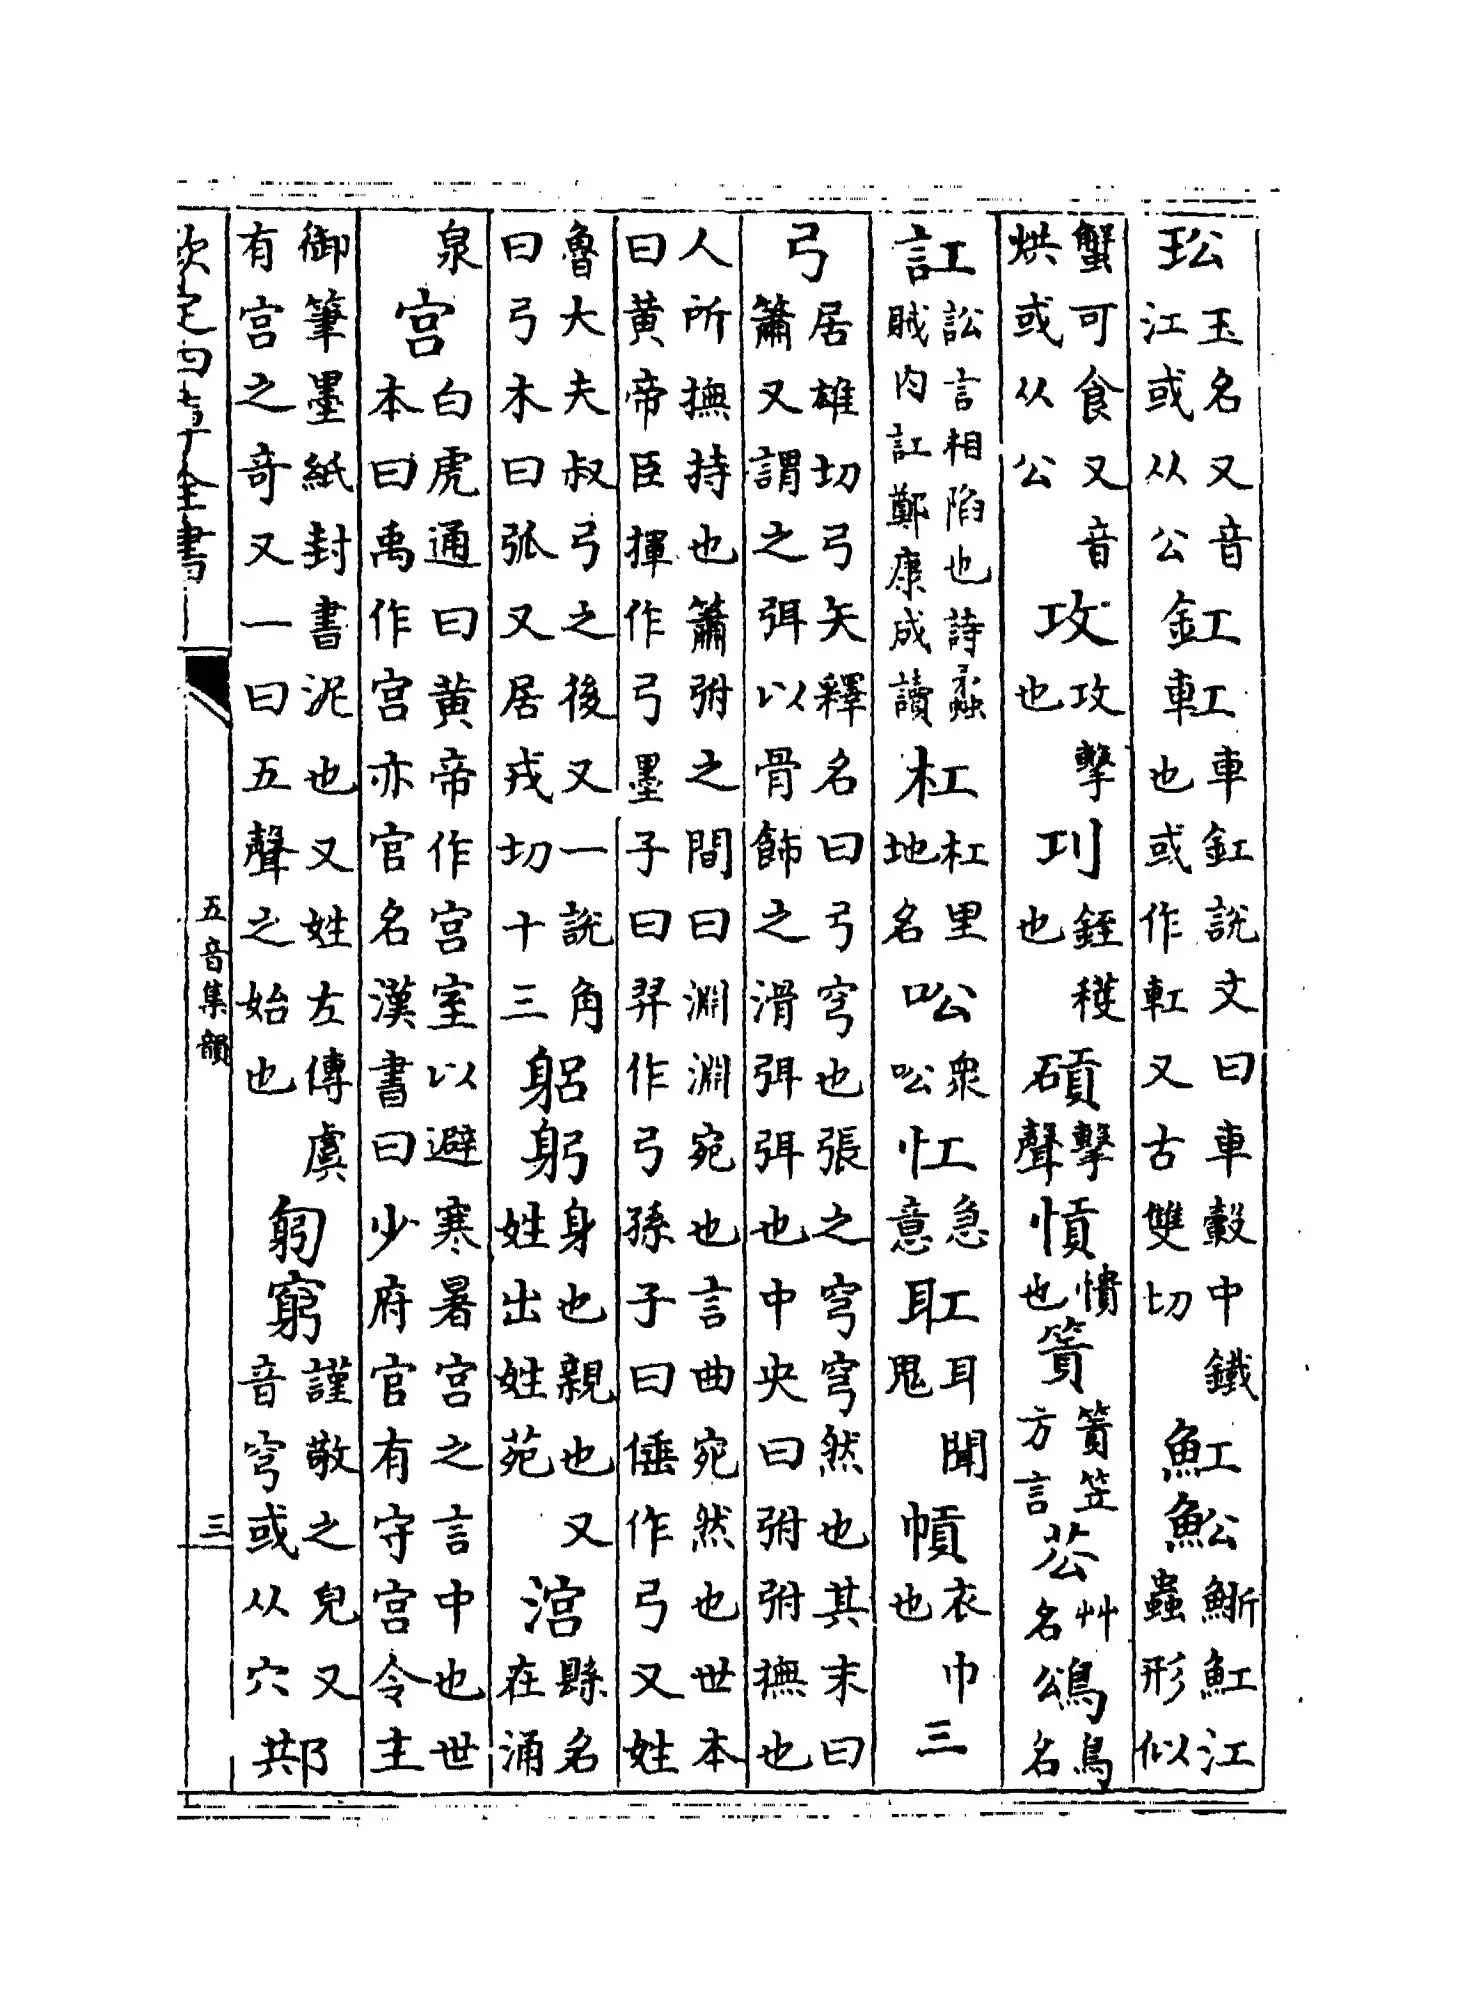 玜玉名又音江或从公釭車釭說文曰車轂中鐵也或作又古雙切魟魟江蟲形似
蟹可食又音烘或从公攻攻擊也㓚銍穫也碽擊聲愩憒也篢篢笠方言䒶艸名䲲鳥名
訌訟言相陷也詩蟊賊内訌鄭康成讀杠杠里地名㕬衆㕬急意耳聞鬼衣巾也三
弓居雄切弓矢釋名曰弓穹也張之穹穹然也其末曰簫又謂之弭以骨飾之滑弭弭也中央曰弣弣撫也
人所撫持也簫弣之間曰淵淵宛也言曲宛然也世本曰黄帝臣揮作弓墨子曰羿作弓孫子曰倕作弓又姓
魯大夫叔弓之後又一說角曰弓木曰弧又居戎切十三躳躬身也親也又姓出姓苑縣名在涌
泉宫白虎通曰黄帝作宫室以避寒暑宫之言中也世本曰禹作宫亦官名漢書曰少府官有守宫令主
御筆墨紙封書泥也又姓左傳虞有宫之奇又一曰五聲之始也匑謹敬之皃又音穹或从穴
欽定四庫全書
五音集韻
三